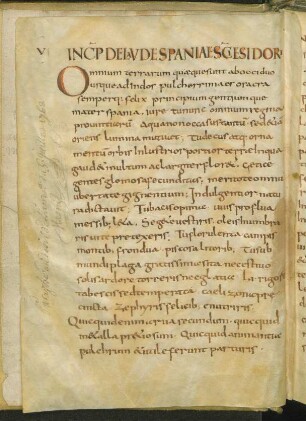 V INCP DE LAVDE SPANIAE SCI ESIDOR
Omnium terrarum quaeque sunt ab occiduo
usque ad indos pulchorrima es o sacra
semperque felix principum gentiumque
mater spania. iure tu nunc omnium regina
provinciarum. A qua non occasus tantum sed etiam
oriens lumina mutuat. Tu decus atq orna
mentum orbis inlustrior portio terre in qua
gaudet multum ac largiter floret. Getice
gentes gloriosa fecunditas. merito te omnium
ubertate gignentium Indulgentior natu
ra ditavit. Tu bacis opima uvis proflua
messib; leta. Segete vestiris. oleis inumbra
ris vite pretexeris. Tu florulenta campis
montib; frondua piscosa litorib; Tu sub
mundi plaga gratissima sita nec estivo
solis ardore torreris nec glaciali rigore
tabescis sed temperata caeli zona prae
cincta Zephyris felicib; enutriris
Quicquid enim arva fecundum quicquid
metalla preciosum Quicquid animantia
pulchrum & utile ferunt parturis.